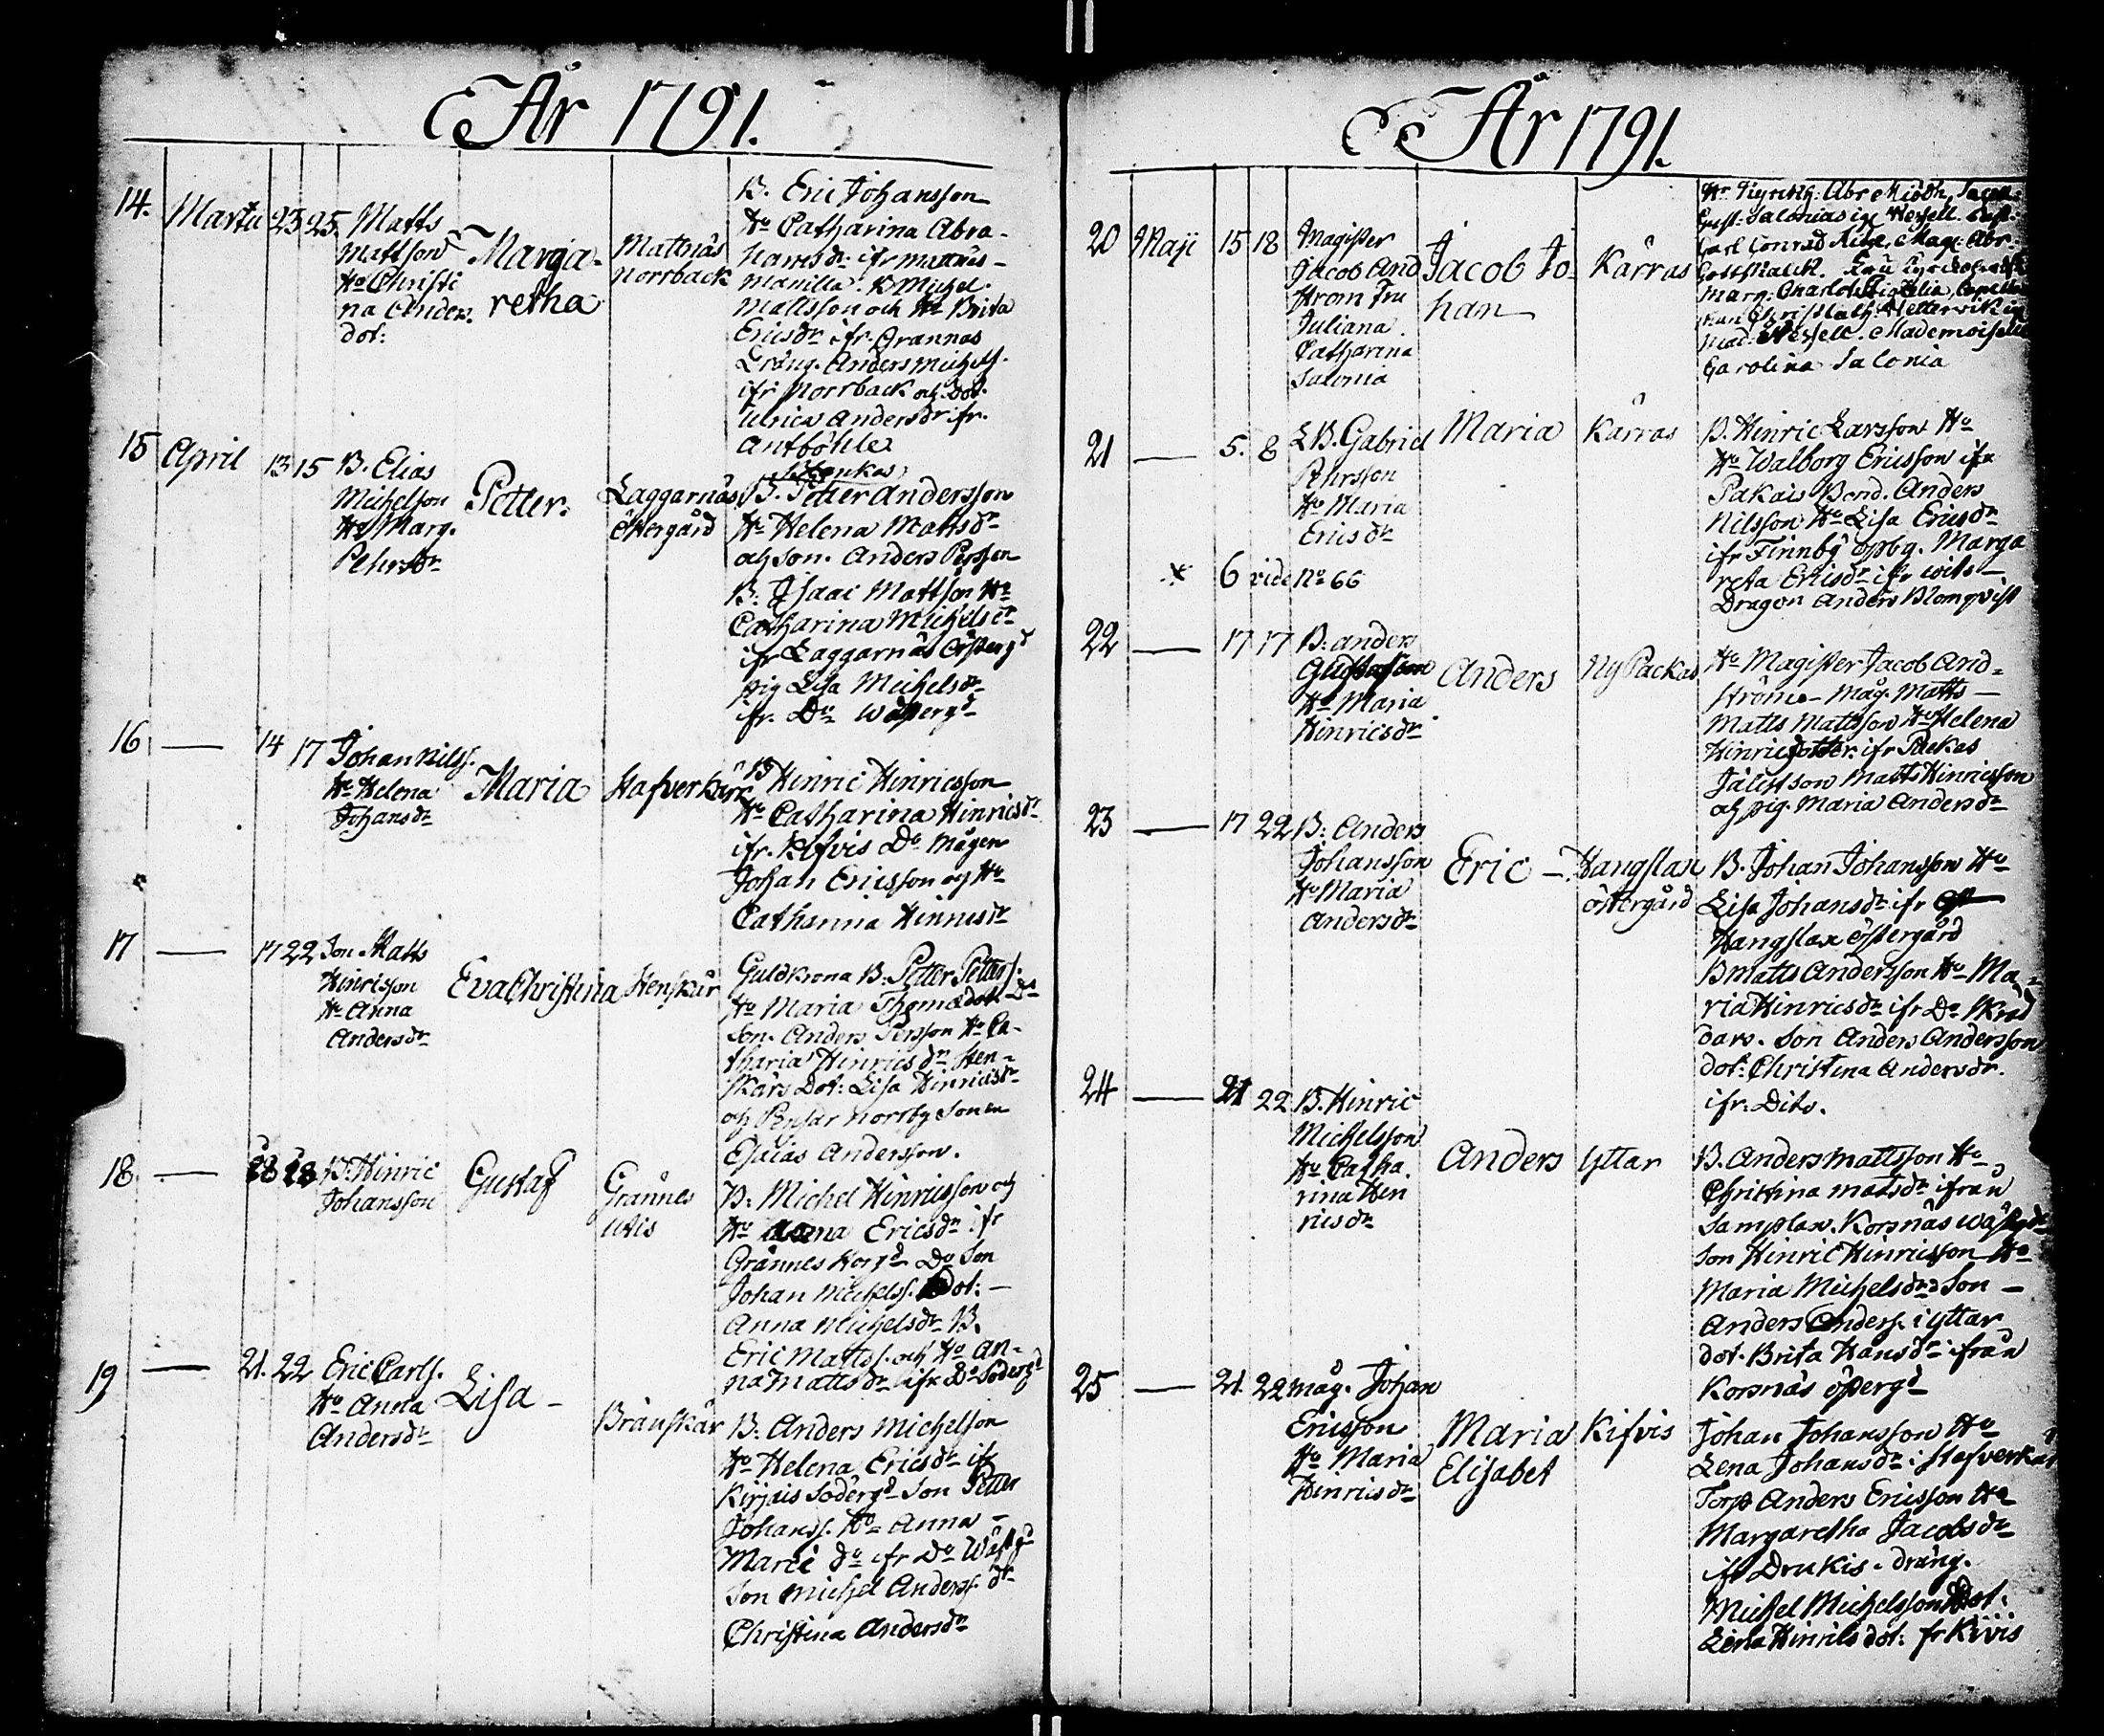 År 1791.
14. Martii 23 25 Matts
Mattsson
Ho Christi
na Anders
dot:
Marga-
retha
Mattnäs
Norrback
B. Eric Johansson
Ho Catharina Abra-
hamsdr ifr mattnäs
manilla. B Michel
Mattsson och Ho Brita
Ericsdr ifr. Grannas
Dräng. Anders Michels.
ifr Norrback och Dot.
Ulrica Andersdr ifr.
Antböhle
15 April 13 15 B. Elias
Michelson
Ho Marg.
Pehrsdr
Petter.
Laggarnäs
östergård
B. Petter Andersson
Ho Helena Matsdr
och son. Anders Persson
B. Isaac Mattson Ho
Catharina Michelsdr
ifr Laggarnäs östergd
pig Lisa Michelsdr
ifr. Do wästergd
16 — 14 17 Johan Nilss.
Ho Helena
Johansdr
Maria
Hafverkärr
B Hinric Hinricsson
Ho Catharina Hinricsdr
ifr. Kifvis Do mågen
Johan Ericsson och Ho
Catharina Hinricsdr
17 — 17 22 Son Matts
Hinricsson
Ho Anna
Andersdr
Eva Christina
Henskär
Guldkrona B: Petter Petters.
Ho Maria Thomædotr Do
Son. Anders Persson Ho Ca-
tharia Hinricsdr Hen-
skärs Dot: Lisa Hinricsdr
och Pensar norrby sonen
Esaias Andersson.
18 — 28 28 B. Hinric
Johansson
Gustaf
Grännes
utis
B. Michel Hinricsson och
Ho Anna Ericsdr ifr
Grännes Norgd Do Son
Johan Michelss. Dot: —
Anna Michelsdr B.
Eric Mattss. och Ho An-
na Mattsdr ifr Do Södergd
19 — 21. 22 Eric Carls.
Ho Anna
Andersdr
Lisa —
Bränskär
B. Anders Michelson
Ho Helena Ericsdr ifr
Kirjais Södergd Son Petter
Johanss. Ho Anna —
Marci do ifr Do Wästg
Son Michel Anderss. dr
Christina Andersdr
År 1791.
20 Maji 15 18 Magister
Jacob And
ström Fru
Juliana
Catharina
Salonia
Jacob Jo-
han
Kärras
Gust: Salonius
Carl Conrad
Gottskalck.
Carolina Salonia
21 — 5. 8 LB. Gabriel
Pehrsson
Ho Maria
Ericsdr
Maria
Kärras
B. Hinric Larsson Ho
Ho Walborg Ericsson ifr
Pakais Bond. Anders
Nilsson Ho Lisa Ericsdr
ifr Finnby öpbg. Marga
reta Ericsdr ifr
Dragon Anders Blomqvist
* 6 vide No 66
22 — 17 17 B: Anders
Gustafsson
Ho Maria
Hinricsdr
Anders
Ny Packas
Ho Magister Jacob And-
ström — måg. Matts —
Matts Mattsson Ho Helena
Hinricsdotter. ifr Packas
Matts Hinricsson
och pig. Maria Andersdr
23 — 17 22 B: Anders
Johansson
Ho Maria
Andersdr
Eric —
Hangslax
östergård
B. Johan Johansson Ho
Lisa Johansdr ifr
Hangslax östergård
B Matts Andersson Ho Ma-
ria Hinricsdr ifr Do Skräd
dars. Son Anders Andersson
dot: Christina Andersdr.
ifr. Dito.
24 — 21 22 B. Hinric
Michelsson
Ho Catha
rina Hin
ricsdr
Anders
Yttar
B. Anders Mattsson Ho
Christina Matsdr ifrån
Samplax. Korsnäs wästgd
Son Hinric Hinricsson Ho
Maria Michelsdr Son —
Anders Anders. i Yttar
dot. Brita Hansdr ifrån
Korsnäs östergd
25 — 21. 22 måg. Johan
Ericsson
Ho Maria
Hinricsdr
Maria
Elisabet
Kifvis
Johan Johansson Ho
Lena Johansdr i Hafverkär
Torp Anders Ericsson Ho
Margaretha Jacobsdr
ifr Drukis. dräng.
Michel Michelsson Dot:
Lena Hinrics dot: fr Kivis